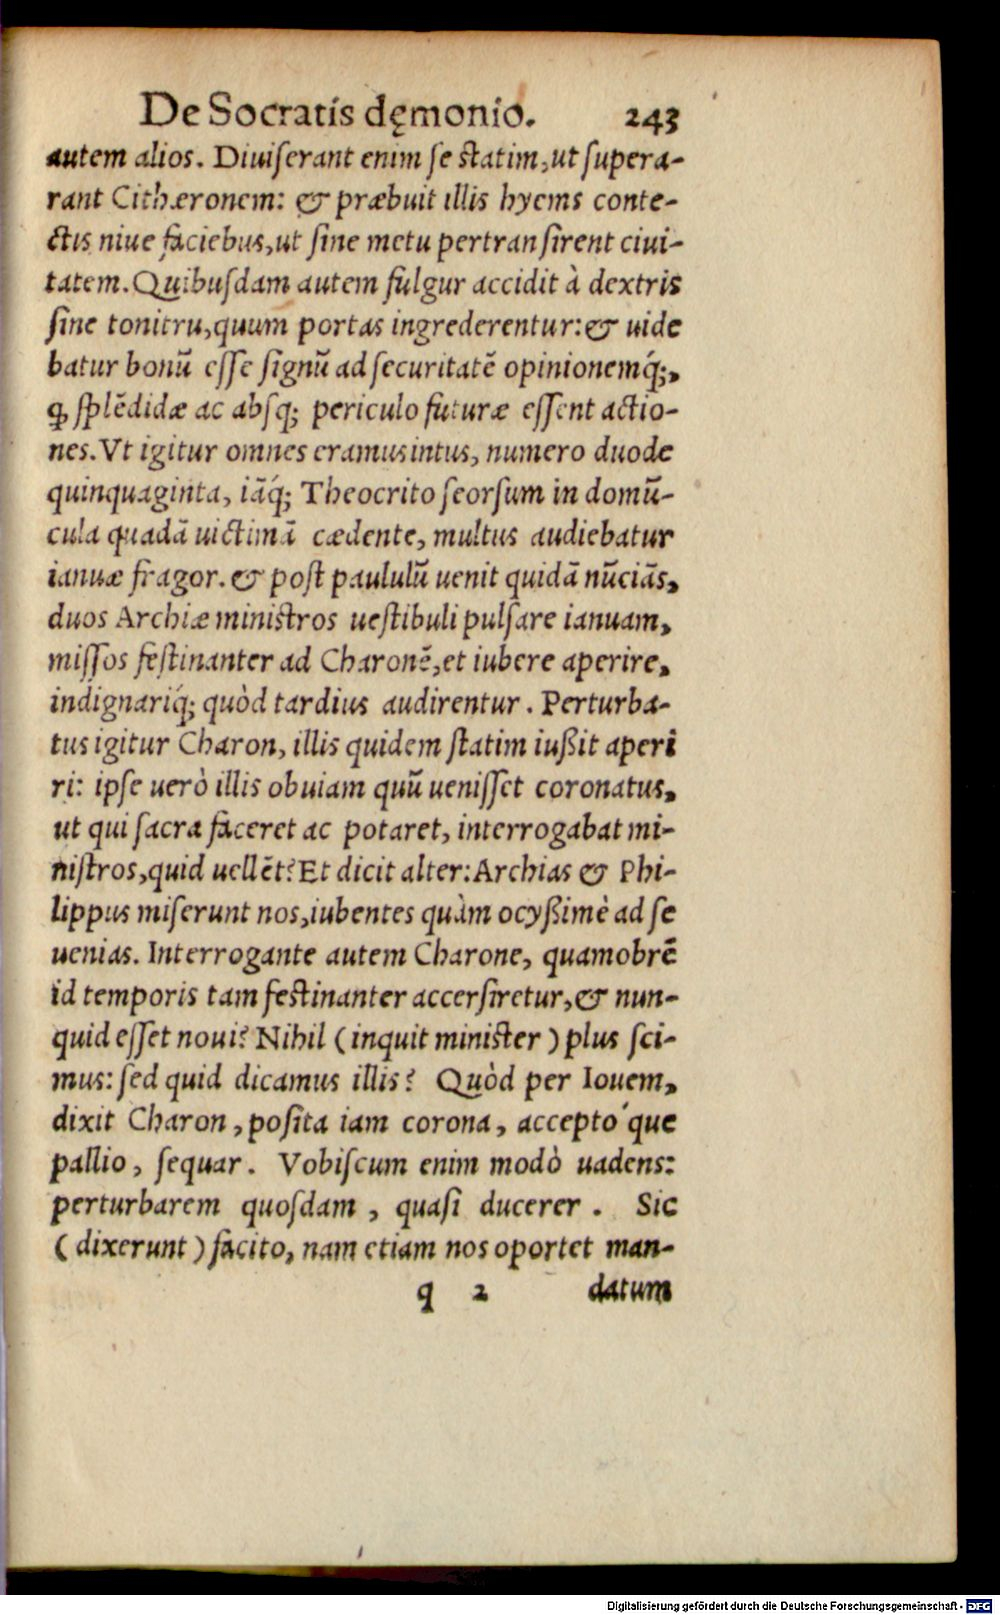 De Socratis dęmonio. 243
autem alios. Diuiserant enim se statim, ut supera-
rant Citheronem: & præbuit illis hyems conte-
ctis niue faciebus, ut sine metu pertransirent ciui-
tatem. Quibusdam autem fulgur accidit à dextris
sine tonitru, quum portas ingrederentur: & uide
batur bonũ esse signũ ad securitatẽ opinionemq́;,
ꝙ splẽdidæ ac absq; periculo futuræ essent actio-
nes. Vt igitur omnes eramus intus, numero duode
quinquaginta, iãq́; Theocrito seorsum in domũ-
cula quadã uictimã cædente, multus audiebatur
ianuæ fragor. & post paululũ uenit quidã nũciãs,
duos Archiæ ministros uestibuli pulsare ianuam,
missos festinanter ad Charonẽ, et iubere aperire,
indignariq́; quòd tardius audirentur. Perturba-
tus igitur Charon, illis quidem statim iußit aperi
ri: ipse uerò illis obuiam quũ uenisset coronatus,
ut qui sacra faceret ac potaret, interrogabat mi-
nistros, quid uellẽt? Et dicit alter: Archias & Phi-
lippus miserunt nos, iubentes quàm ocyßimè ad se
uenias. Interrogante autem Charone, quamobrẽ
id temporis tam festinanter accersiretur, & nun-
quid esset noui? Nihil (inquit minister) plus sci-
mus: sed quid dicamus illis? Quòd per Iouem,
dixit Charon, posita iam corona, accepto´que
pallio, sequar. Vobiscum enim modò uadens:
perturbarem quosdam, quasi ducerer. Sic
(dixerunt) facito, nam etiam nos oportet man-
q 2 datum
Digitalisierung gefördert durch die Deutsche Forschungsgemeinschaft - DFG